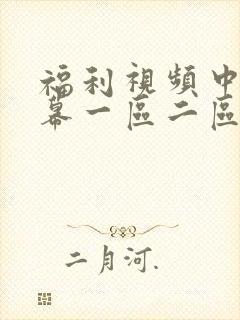 福利視頻中
幕一區二區
二月河.